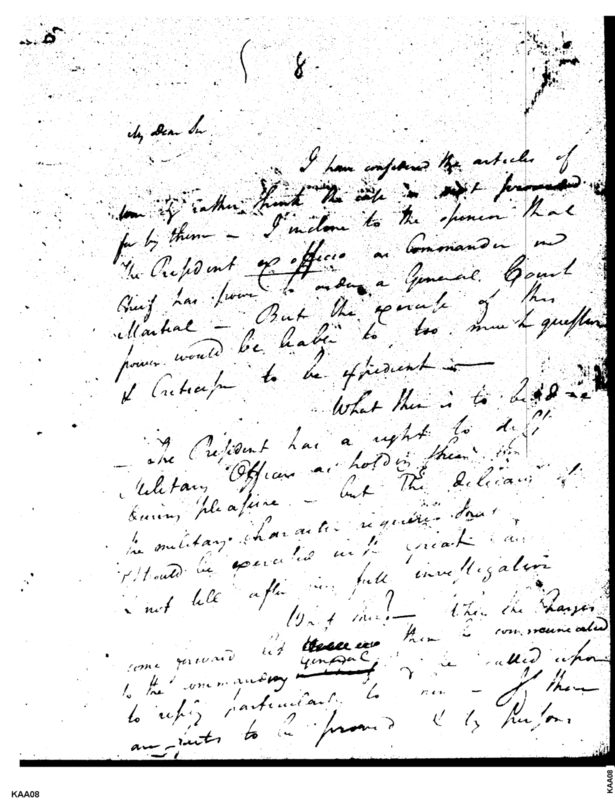 8
My dear Sir
I have considered the articles of
war & rather think the case is not provided
for by them — I incline to the opinion that
The President ex officio as Commander in
Chief has power to order a General Court
Martial — But the exercise of this
power would be liable to too much question
& Criticism to be expedient —
What then is to be done
— The President has a right to
Military Officers as holding their
during pleasure — but the delicacy of
the military character requires that
should be exercised with great
not till after full investigation
When the Charges
come forward let them be communicated
to the commanding general & he called upon
to reply particularly to — If there
are facts to be proved & by persons
KAA08
KAA08